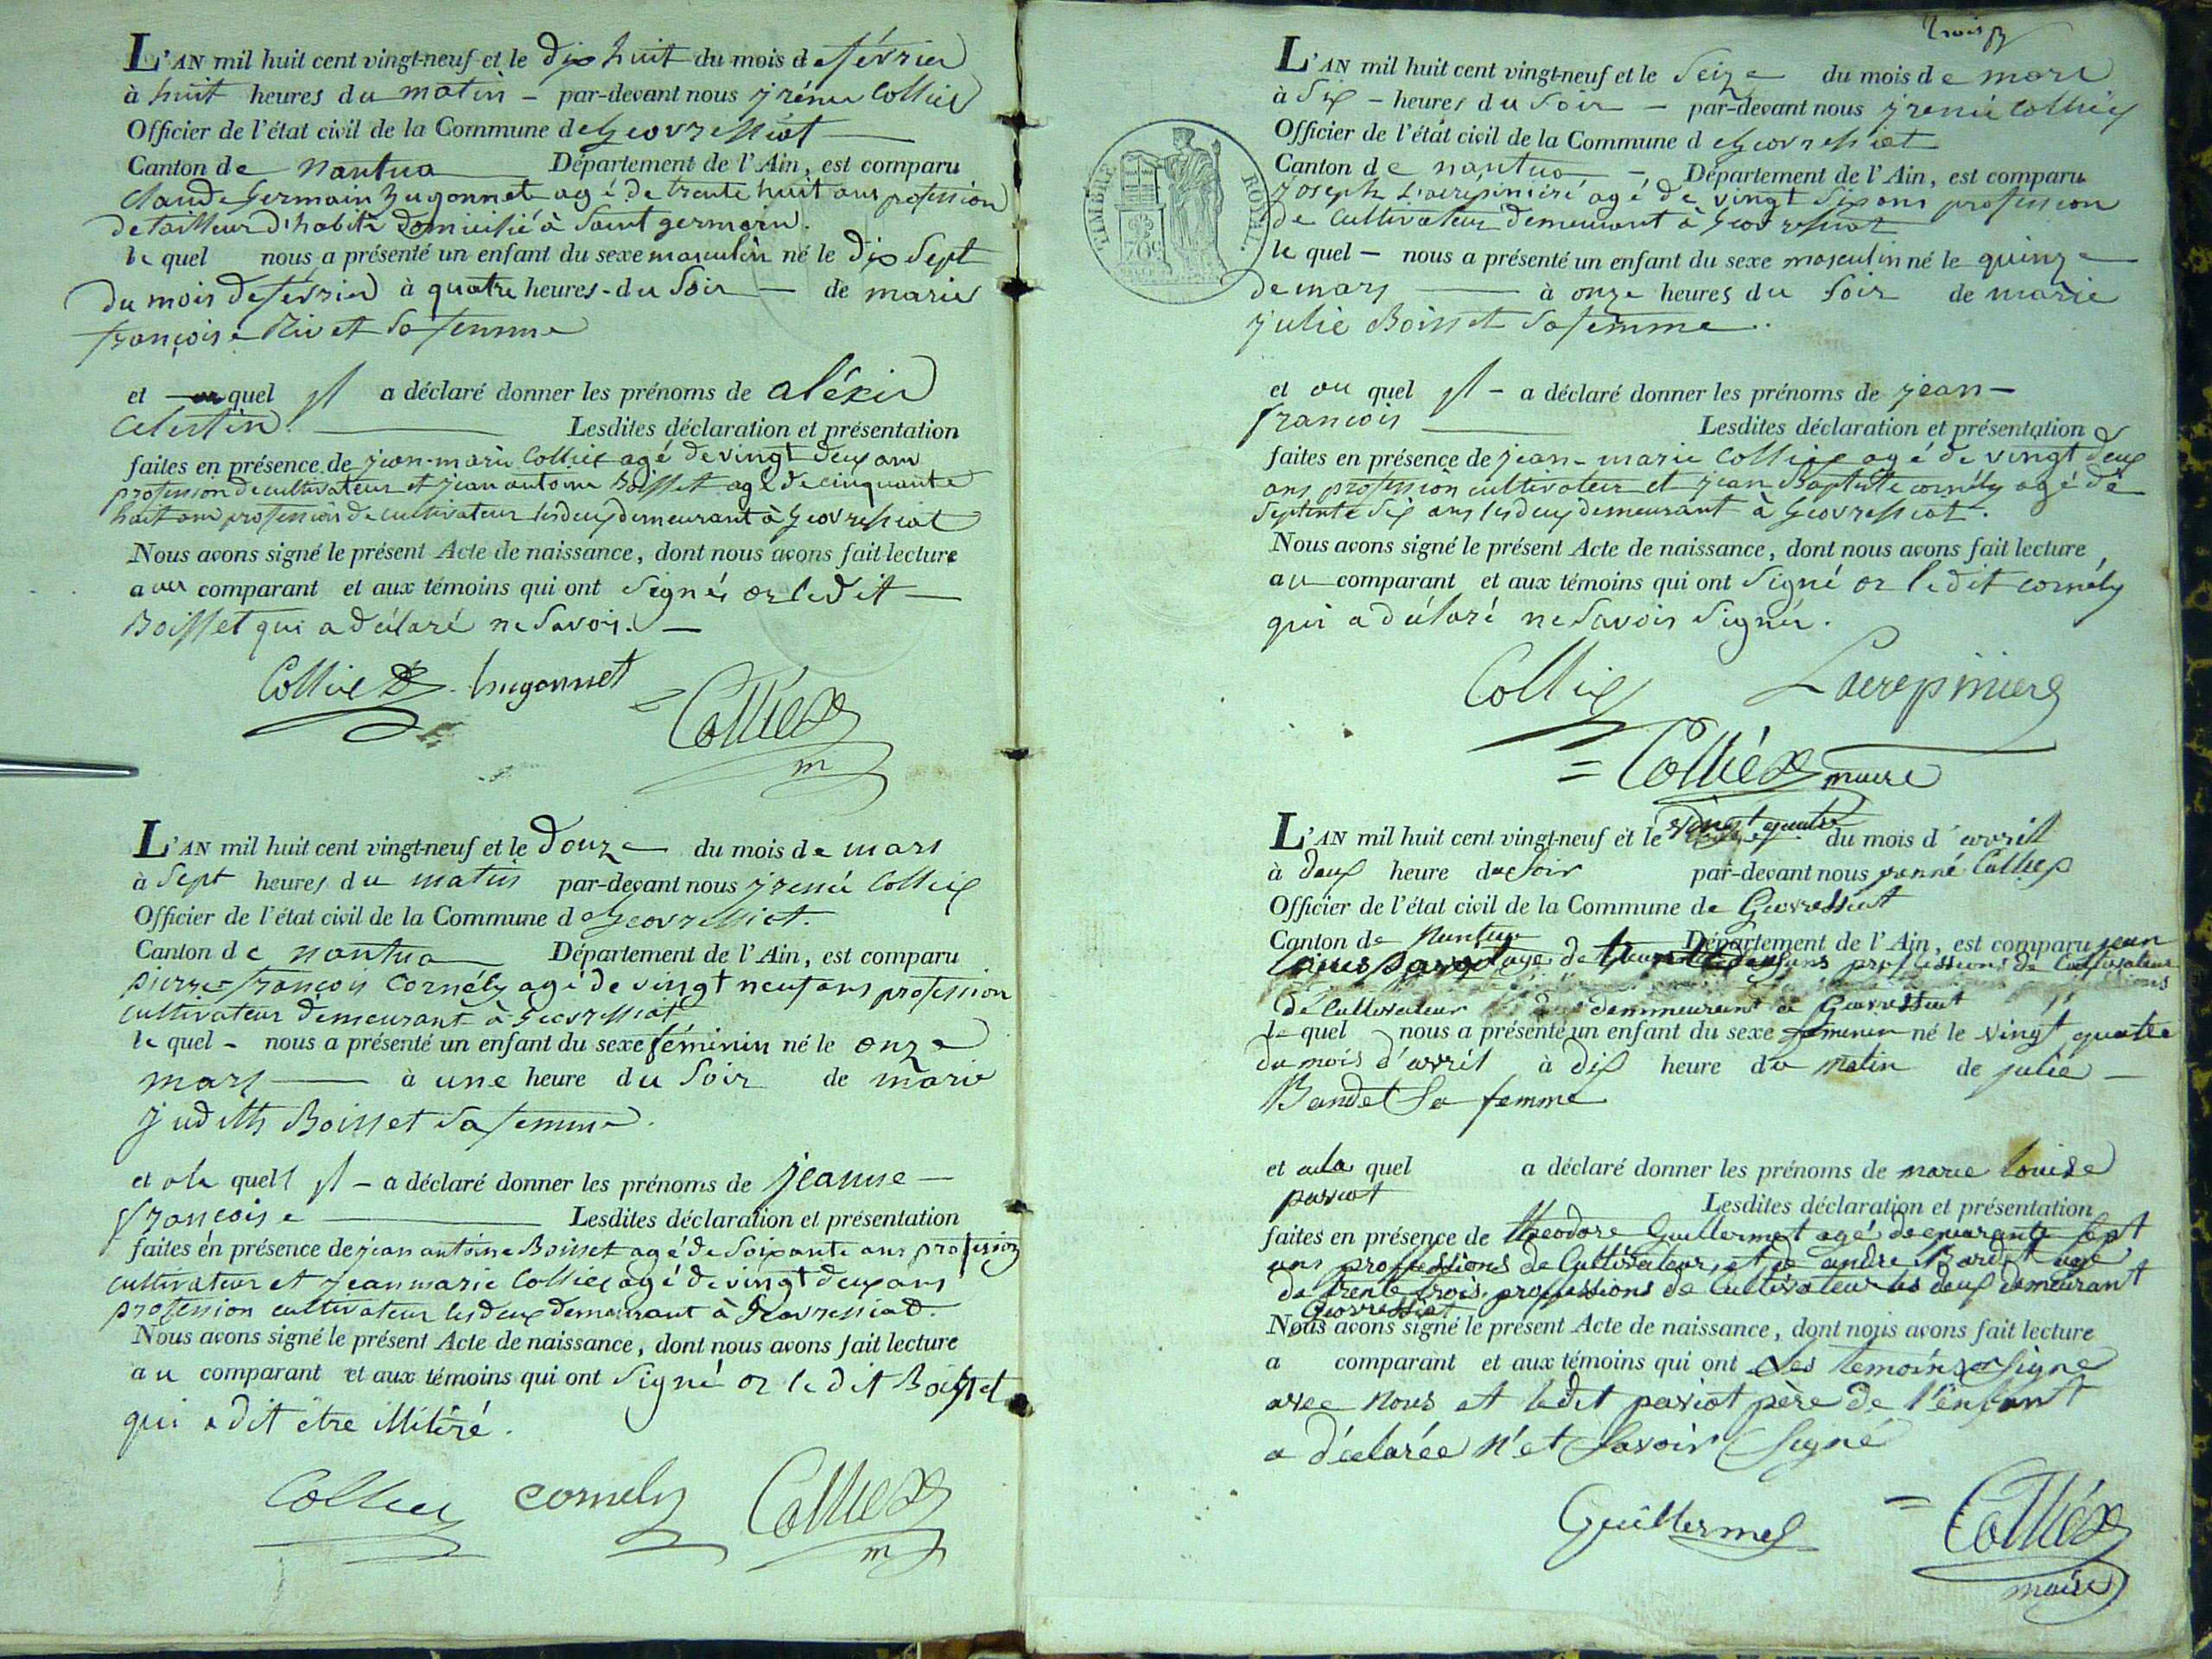 L'AN mil huit cent vingt-neuf et le dix huit du mois de février
à huit heures du matin - par-devant nous jrénée Colliex
Officier de l'état civil de la Commune de Geovressiat
Canton de nantua Département de l'Ain, est comparu
Claude Germain hugonnet agé de trente huit ans profession
de tailleur d'habits domicilié à Saint germain.
le quel nous a présenté un enfant du sexe masculin né le dix Sept
du mois de février à quatre heures du Soir - de marie
françoise Rivet Sa femme
et au quel jl a déclaré donner les prénoms de aléxis
Celestin. Lesdites déclaration et présentation
faites en présence de jean-marie Colliex agé de vingt deux ans
profession de cultivateur et jean antoine Boisset agé de cinquante
huit ans profession de cultivateur les deux demeurant à Geovressiat
Nous avons signé le présent Acte de naissance, dont nous avons fait lecture
a comparant et aux témoins qui ont Signés or le dit
Boisset qui a déclaré ne Savoir.
Colliex hugonnet
Colliex
m
L'AN mil huit cent vingt-neuf et le douze du mois de mars
à Sept heures du matin par-devant nous jrenée Colliex
Officier de l'état civil de la Commune de Geovressiat.
Canton de nantua Département de l'Ain, est comparu
pierre-françois Cornély agé de vingt neuf ans profession
cultivateur demeurant à Geovressiat
le quel - nous a présenté un enfant du sexe féminin né le onze
mars à une heure du Soir de marie
judith Boisset Sa femme.
et a la quell jl - a déclaré donner les prénoms de jeanne -
françoise Lesdites déclaration et présentation
faites en présence de jean antoine Boisset agé de Soixante ans profession
cultivateur et jean marie Colliex agé de vingt deux ans
profession cultivateur les deux demeurant à Geovressiat.
Nous avons signé le présent Acte de naissance, dont nous avons fait lecture
au comparant et aux témoins qui ont Signé or le dit Boisset
qui a dit être illitéré.
Colliex cornely Colliex
m
trois
L'AN mil huit cent vingt-neuf et le Seize du mois de mars
à Six - heures du Soir - par-devant nous jrenée Colliex
Officier de l'état civil de la Commune de Geovressiat
Canton de nantua - Département de l'Ain, est comparu
joseph Lacrepiniere agé de vingt Six ans profession
de Cultivateur demeurant à Geovressiat
TIMBRE ROYAL.
le quel - nous a présenté un enfant du sexe masculin né le quinze
de mars à onze heures du Soir de marie
julie Boisset Sa femme.
et au quel jl - a déclaré donner les prénoms de jean -
françois Lesdites déclaration et présentation
faites en présence de jean-marie Colliex agé de vingt deux
ans profession cultivateur et jean Baptiste cornély agé de
Septente Six ans les deux demeurant à Geovressiat.
Nous avons signé le présent Acte de naissance, dont nous avons fait lecture
au comparant et aux témoins qui ont Signé or le dit cornély
qui a déclaré ne Savoir Signer.
Colliex Lacrepiniere
Colliéx maire
L'AN mil huit cent vingt-neuf et le vingt quatre du mois d'avril
à deux heure du Soir par-devant nous Colliex
Officier de l'état civil de la Commune de Geovressiat
Canton de Nantua Département de l'Ain, est comparu jean
Louis agé de ans professions de Cultivateur
de Cultivateur demmeurant a Geovressiat
le quel nous a présenté un enfant du sexe femenin né le vingt quatre
du mois d'avril à dix heure du matin de julie -
Bandet Sa femme
et a la quel a déclaré donner les prénoms de marie louise
paviot Lesdites déclaration et présentation
faites en présence de theodore Guillermet agé de quarante Sept
ans professions de Cultivateur, et de andre Bardet agé
de trente trois professions de Cultivateur les deux demeurant
Geovressiat
Nous avons signé le présent Acte de naissance, dont nous avons fait lecture
a comparant et aux témoins qui ont les temoins Signé
avec Nous et ledit paviot père de l'enfant
a déclarée n'et Savoir Signé
Guillermet Colliéx
maire